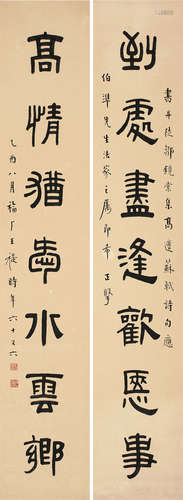 到處盡逢歡恩事
書丹徒鄒鏡棠集高適蘇軾詩句應
伯準先生法家之屬即希 正擘
高情猶愛水雲鄉
乙酉八月福厂王禔時年六十又六